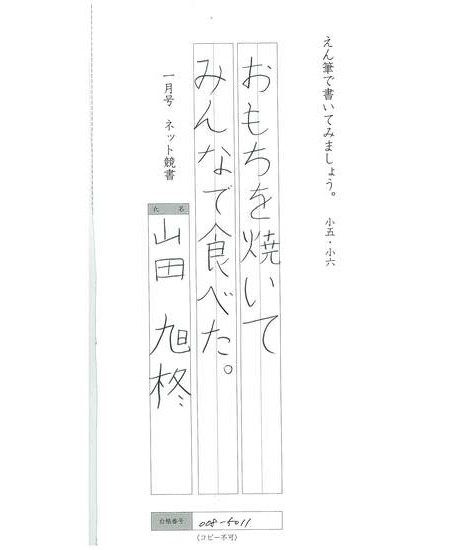 えん筆で書いてみましょう。 小五・小六
おもちを焼いて
みんなで食べた。
一月号 ネット競書
氏名
山田 旭柊
台帳番号 008-5011
(コピー不可)